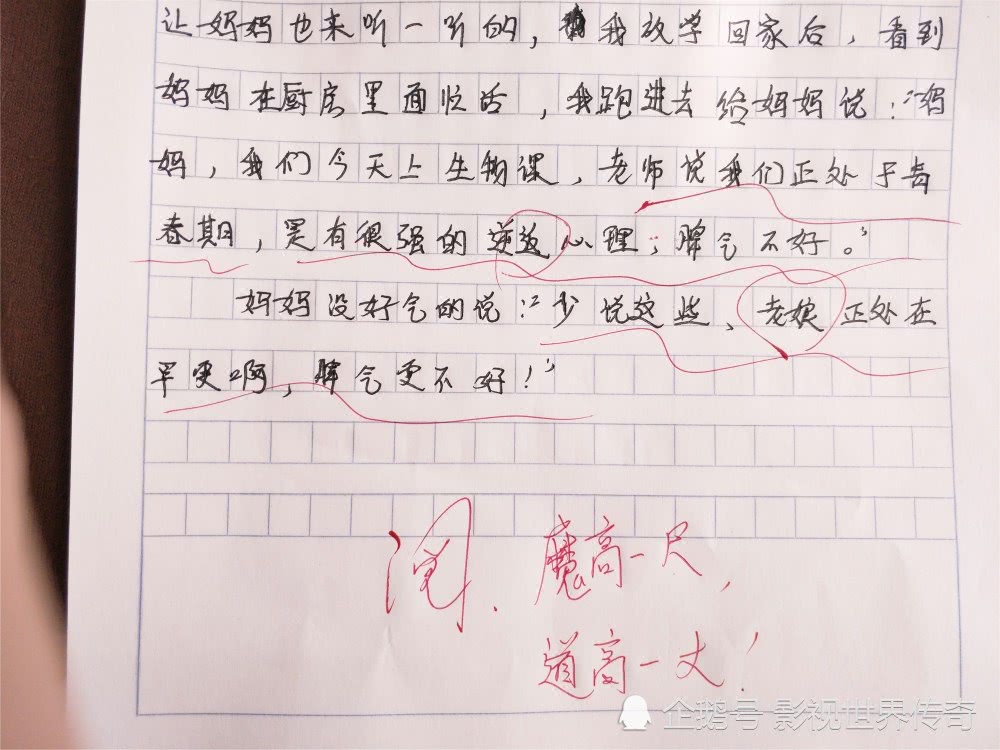 让妈妈也来听一听的，我放学回家后，看到
妈妈在厨房里面忙活，我跑进去给妈妈说：“妈
妈，我们今天上生物课，老师说我们正处于青
春期，是有很强的逆返心理，脾气不好。”
妈妈没好气的说：“少说这些，老娘正处在
罕更啊，脾气更不好！”
阅.
魔高一尺，
道高一丈！
企鹅号 影视世界传奇